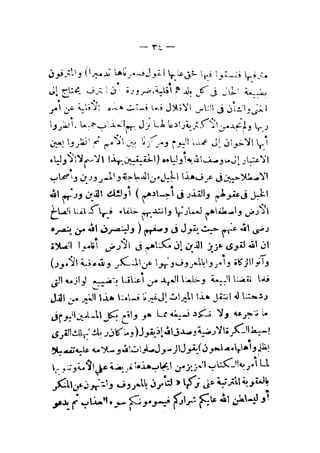 — ٣٤ —
مترفيها ففسقوا فيها لحق عليها القول فدمرناها تدميرا) والمترفون
بطبيعة الحال فى كل بلد هم أقلية، ضرورة أن الترف يحتاج إلى
الغنى والشأن فى الناس الاقلال فما فسقت هذه الأقلية عن أمر
ربها ولم تجد من الأكثرية رادعا لها نزل بهم العذاب جميعا. انظروا
أيها الاخوان إلى عددنا اليوم ومركزنا بين الأمم ثم انظروا بعين
الاعتبار إلى ما وصف الله به أولياءه (الحقيقيين بهذا الاسم لا الأولياء
الاصطلاحيين فى عرف هذا الجيل من الدجاجلة والممرورين وأصحاب
الخبل فى عقولهم والقذر فى أجسادهم) أولئك الذين ورثهم الله
الأرض واصطفاهم لعمارتها وانتدبهم خلفاء فيها كسلفنا الصالح
رضى الله عنهم حيث يقول فى وصفهم (ولينصرن الله من ينصره
إن الله لقوى عزيز الذين إن مكناهم فى الأرض أقاموا الصلاة
وآتوا الزكاة وأمروا بالمعروف ونهوا عن المنكر ولله عاقبة الأمور)
فلما نقضنا البيعة وخلعنا العهد من أعناقنا بتضييع لوازمه التى
رشحتنا له انتقل هذا الميراث إلى غيرنا فسامنا هذا الغير من الذل
ما نتجرعه ولا نكاد نسيغه مما هو واقع بكل المسلمين اليوم فى
بسيط الكرة الارضية وصدق الله إذ يقول (وما كان ربك ليهلك القرى
بظلم وأهلها مصلحون) يقول الرسول صلوات الله وسلامه عليه تفصيلا
لما أمر به الكتاب العزيز من ايجاب هذه الفريضة على الأمة وتنويها
بالعقوبة المترتبة على تركها « لتأمرن بالمعروف ولتنهون عن المنكر
أو ليسلطن الله عليكم شراركم فيسومونكم سوء العذاب ثم يدعو